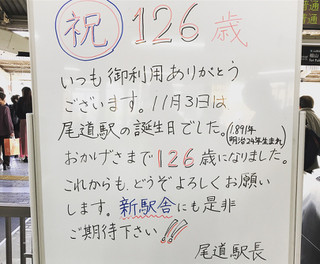 祝 126歳
いつも御利用ありがとう
ございます。11月3日は
尾道駅の誕生日でした。(1891年 明治24年生まれ)
おかげさまで126歳になりました。
これからも、どうぞよろしくお願い
します。新駅舎にも是非
ご期待下さい!!
尾道駅長